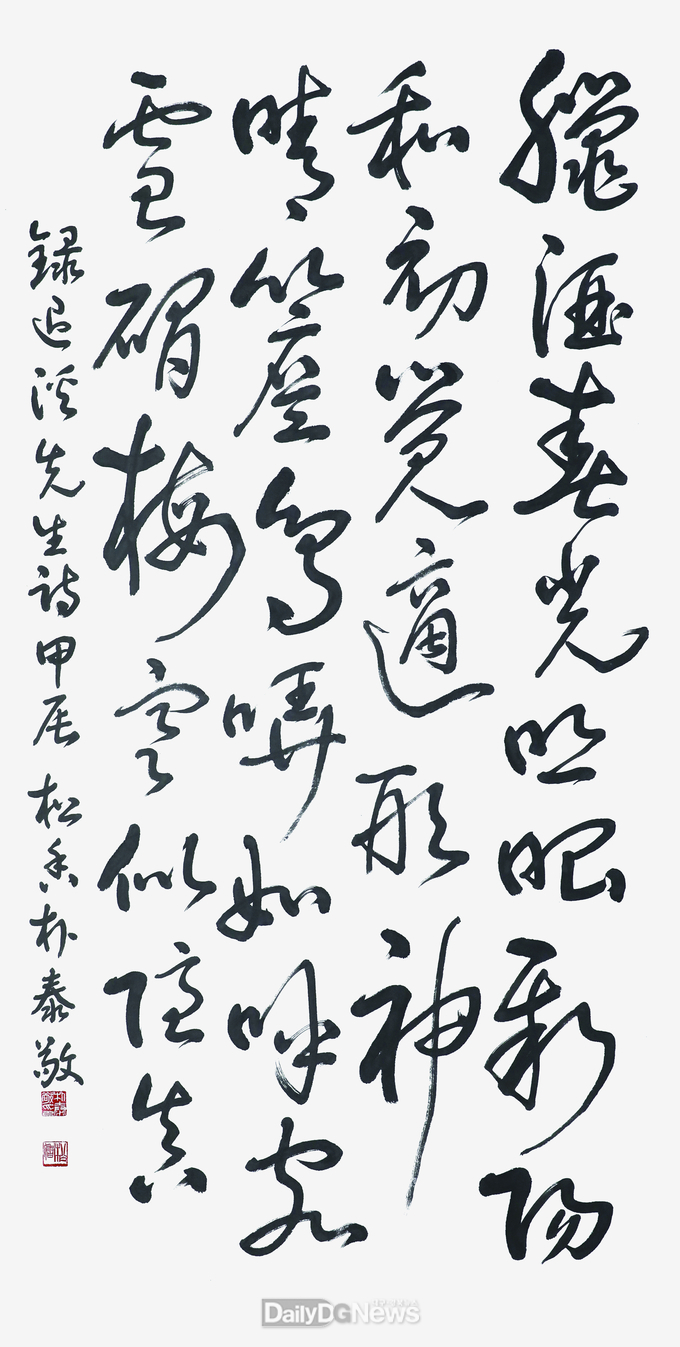 臘酒春光照眼新陽
和初覺適形神
晴簷鳥哢如呼客
雪磵梅寒似隱真
錄退溪先生詩甲辰 松香朴泰敬
DailyDGNews